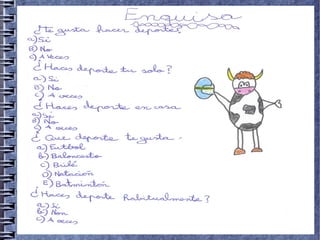 Enquisa
¿Te gusta hacer deporte?
a) Sí
B) No
c) A veces
¿Haces deporte tu solo?
a) Sí
B) No
c) A veces
¿Haces deporte en casa
a) Sí
B) No
c) A veces
¿Que deporte te gusta.
a) Futbol
b) Baloncesto
c) Brilé
D) Natación
E) Batminton
¿Haces deporte habitualmente?
a) Sí
b) Non
c) A veces